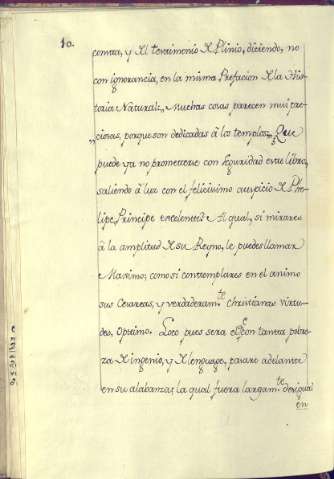 10.
contra, y del testimonio de Plinio, diciendo, no
con ignorancia, en la misma Prefacion de la His-
toria Natural: „Muchas cosas parecen mui pre-
„ciosas, porque son dedicadas à los templos„. Que
puede ya no prometerse con seguridad este libro,
saliendo à luz con el felicissimo auspicio de Phe-
lipe, Principe excelente? Al qual, si mirares
à la amplitud de su Reyno, le puedes llamar
Maximo; como si contemplares en el animo
sus Cesareas, y verdaderam.te Christianas virtu-
des, Optimo. Loco pues sera el q.e con tanta pobre-
za de ingenio, y de lenguage, pasare adelante
en su alabanza, la qual fuera largam.te desigual
en